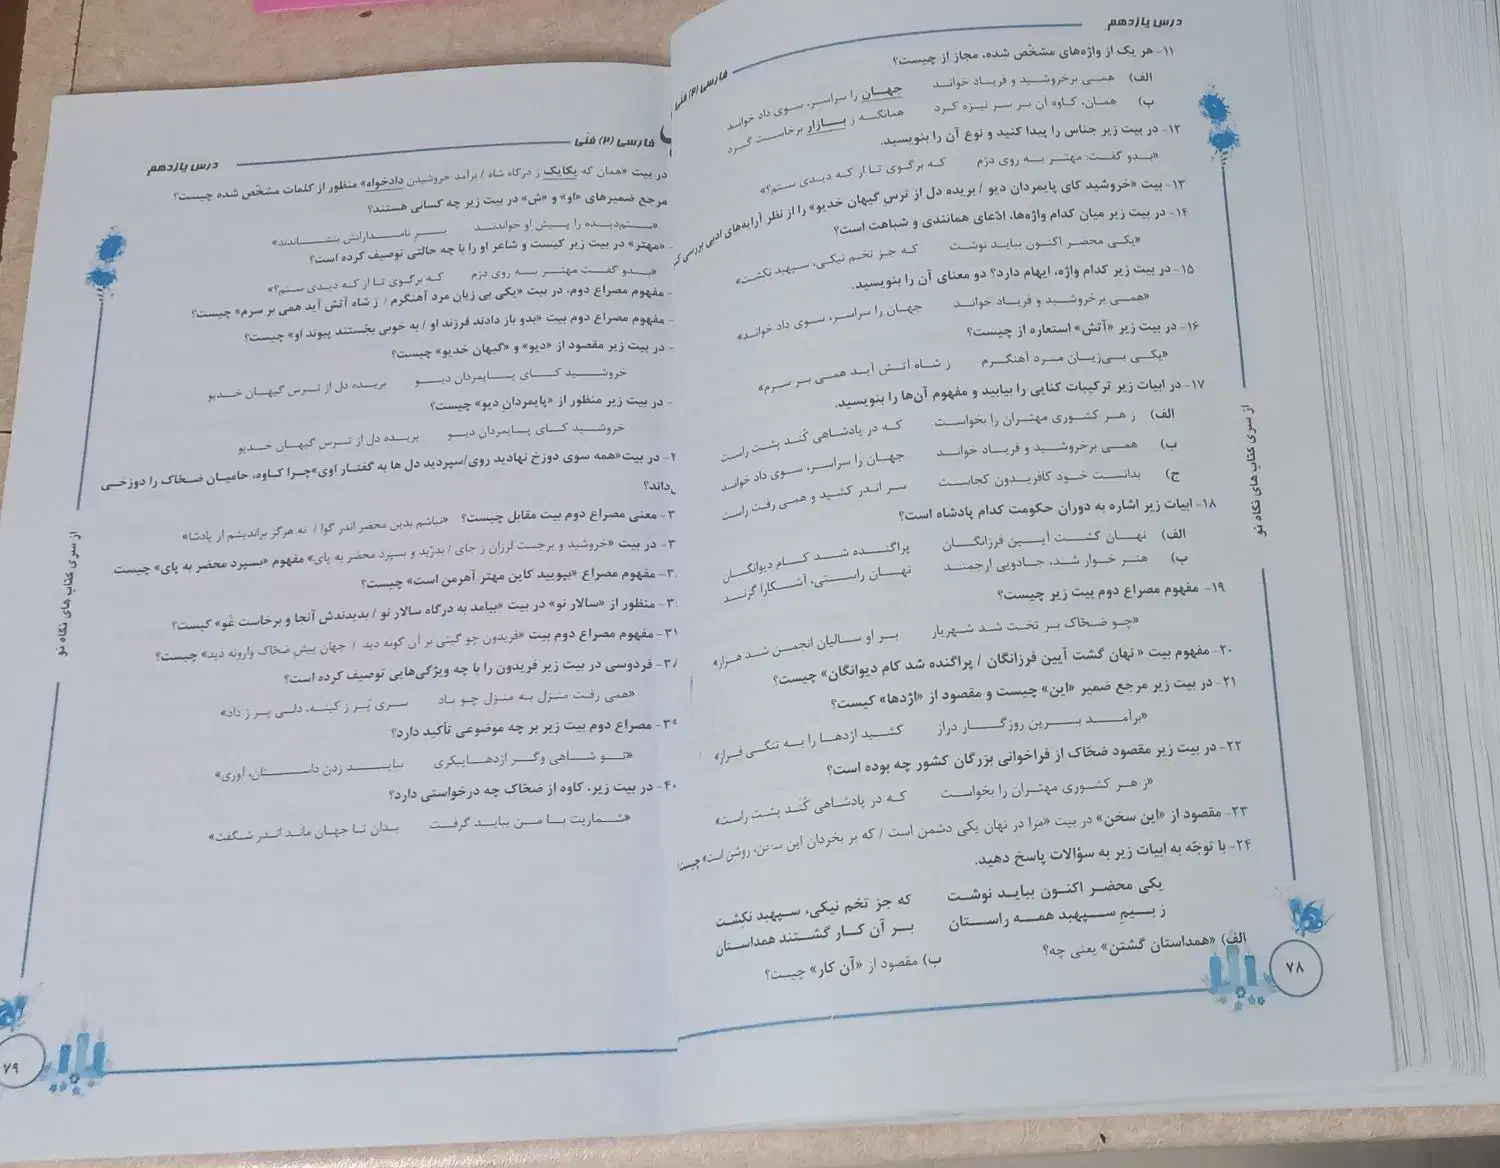 درس یازدهم
فارسی (۲) فنی
۱۱- هر یک از واژه‌های مشخّص شده، مجاز از چیست؟
الف) همی برخروشید و فریاد خواند جهان را سراسر، سوی داد خواند
ب) همان، کاوه آن بر سر نیزه کرد همانگه ز بازار برخاست گرد
۱۲- در بیت زیر جناس را پیدا کنید و نوع آن را بنویسید.
«بدو گفت: مهتر به روی دژم که برگوی تا از که دیدی ستم؟»
۱۳- بیت «خروشید کای پایمردان دیو / بریده دل از ترس گیهان خدیو» را از نظر آرایه‌های ادبی بررسی کنید
۱۴- در بیت زیر میان کدام واژه‌ها، ادّعای همانندی و شباهت است؟
«یکی محضر اکنون بباید نوشت که جز تخم نیکی، سپهبد نکشت»
۱۵- در بیت زیر کدام واژه، ایهام دارد؟ دو معنای آن را بنویسید.
«همی برخروشید و فریاد خواند جهان را سراسر، سوی داد خواند»
۱۶- در بیت زیر «آتش» استعاره از چیست؟
«یکی بی‌زیان مرد آهنگرم ز شاه آتش آید همی بر سرم»
۱۷- در ابیات زیر ترکیبات کنایی را بیابید و مفهوم آن‌ها را بنویسید.
الف) ز هر کشوری مهتران را بخواست که در پادشاهی کُند پشت راست
ب) همی برخروشید و فریاد خواند جهان را سراسر، سوی داد خواند
ج) بدانست خود کافریدون کجاست سر اندر کشید و همی رفت راست
۱۸- ابیات زیر اشاره به دوران حکومت کدام پادشاه است؟
الف) نهان گشت آیین فرزانگان پراگنده شد کام دیوانگان
ب) هنر خوار شد، جادویی ارجمند نهان راستی، آشکارا گزند
۱۹- مفهوم مصراع دوم بیت زیر چیست؟
«چو ضحّاک بر تخت شد شهریار بر او سالیان انجمن شد هزار»
۲۰- مفهوم بیت «نهان گشت آیین فرزانگان / پراگنده شد کام دیوانگان» چیست؟
۲۱- در بیت زیر مرجع ضمیر «این» چیست و مقصود از «اژدها» کیست؟
«برآمد برین روزگار دراز کشید اژدها را به تنگی فراز»
۲۲- در بیت زیر مقصود ضحّاک از فراخوانی بزرگان کشور چه بوده است؟
«ز هر کشوری مهتران را بخواست که در پادشاهی کُند پشت راست»
۲۳- مقصود از «این سخن» در بیت «مرا در نهان یکی دشمن است / که بر بخردان این سخن، روشن است» چیست؟
۲۴- با توجّه به ابیات زیر به سؤالات پاسخ دهید.
یکی محضر اکنون بباید نوشت که جز تخم نیکی، سپهبد نکِشت
ز بیم سپهبد همه راستان بر آن کار گشتند همداستان
الف) «همداستان گشتن» یعنی چه؟ ب) مقصود از «آن کار» چیست؟
۷۸
از سری کتاب های نگاه نو
فارسی (۲) فنّی
درس یازدهم
در بیت «همان که یکایک ز درگاه شاه / برآمد خروشیدن دادخواه» منظور از کلمات مشخّص شده چیست؟
مرجع ضمیرهای «او» و «ش» در بیت زیر چه کسانی هستند؟
«ستم‌دیده را پیش او خواندند بر نامدارانش بنشاندند»
- «مهتر» در بیت زیر کیست و شاعر او را با چه حالتی توصیف کرده است؟
«بدو گفت مهتر به روی دژم که برگوی تا از که دیدی ستم؟»
- مفهوم مصراع دوم، در بیت «یکی بی زیان مرد آهنگرم / ز شاه آتش آید همی بر سرم» چیست؟
- مفهوم مصراع دوم بیت «بدو باز دادند فرزند او / به خوبی بجُستند پیوند او» چیست؟
- در بیت زیر مقصود از «دیو» و «گیهان خدیو» چیست؟
خروشید کای پایمردان دیو بریده دل از ترس گیهان خدیو
- در بیت زیر منظور از «پایمردان دیو» چیست؟
خروشید کای پایمردان دیو بریده دل از ترس گیهان خدیو
- در بیت«همه سوی دوزخ نهادید روی/سپردید دل ها به گفتار اوی»چرا کاوه، حامیان ضحّاک را دوزخی
داند؟
۳- معنی مصراع دوم بیت مقابل چیست؟ «نباشم بدین محضر اندر گوا / نه هرگز براندیشم از پادشا»
۳- در بیت «خروشید و برجست لرزان ز جای / بدرّید و بسپرد محضر به پای» مفهوم «بسپرد محضر به پای» چیست.
۳- مفهوم مصراع «بپویید کاین مهتر آهرمن است» چیست؟
۳- منظور از «سالار نو» در بیت «بیامد به درگاه سالار نو / بدیدندش آنجا و برخاست غَو» کیست؟
- مفهوم مصراع دوم بیت «فریدون چو گیتی بر آن گونه دید / جهان پیش ضحّاک وارونه دید» چیست؟
- فردوسی در بیت زیر فریدون را با چه ویژگی‌هایی توصیف کرده است؟
«همی رفت منزل به منزل چو باد سری پُر ز کینه، دلی پر ز داد»
۳۹- مصراع دوم بیت زیر بر چه موضوعی تأکید دارد؟
«تو شاهی وگر اژدهاپیکری بباید زدن داستان، آوری»
۴۰- در بیت زیر، کاوه از ضحّاک چه درخواستی دارد؟
«شماریت با من بباید گرفت بدان تا جهان ماند اندر شگفت»
از سری کتاب های نگاه نو
۷۹